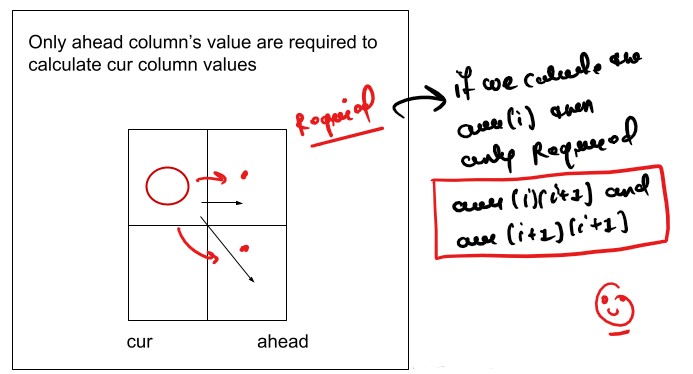 Only ahead column's value are required to
calculate cur column values
Required
if we calculate the
curr[i] then
only Required
curr[i][i+1] and
curr[i+1][i+1]
cur ahead